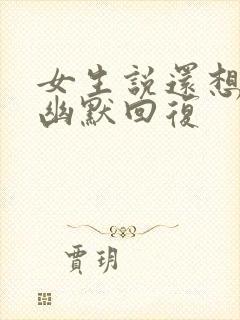 女生說還想
幽默回復
賈玥